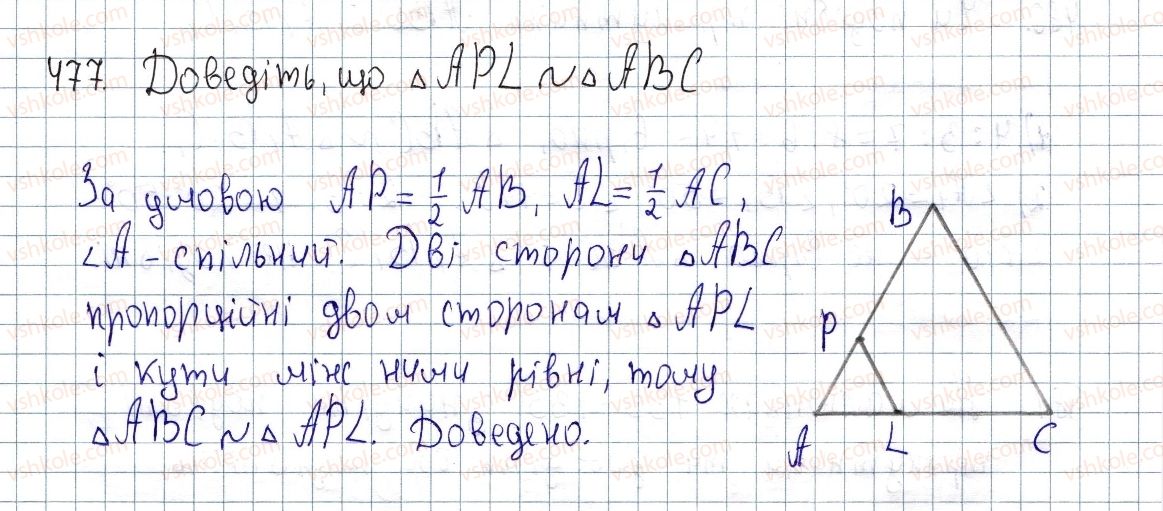 477. Доведіть, що △APL ~ △ABC
За умовою AP = 1/2 AB, AL = 1/2 AC,
∠A - спільний. Дві сторони △ABC
пропорційні двом сторонам △APL
і кути між ними рівні, тому
△ABC ~ △APL. Доведено.
B
P
A L C
vshkole.com